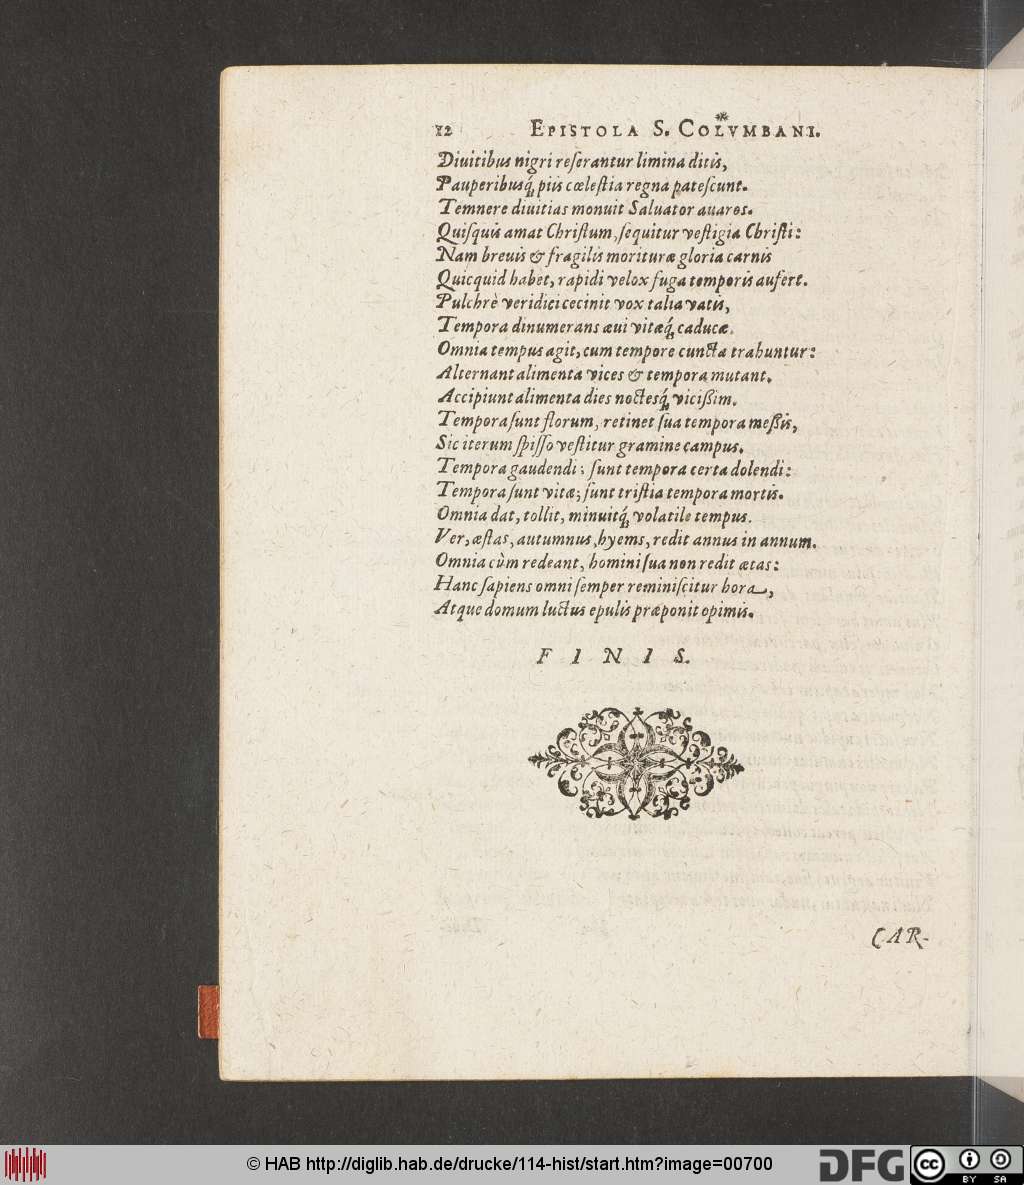 12 EPISTOLA S. COLVMBANI.
Diuitibus nigri reſerantur limina ditis,
Pauperibusq́; piis cœleſtia regna pateſcunt.
Temnere diuitias monuit Saluator auaros.
Quiſquis amat Chriſtum, ſequitur veſtigia Chriſti:
Nam breuis & fragilis morituræ gloria carnis
Quicquid habet, rapidi velox fuga temporis aufert.
Pulchrè veridici cecinit vox talia vatis,
Tempora dinumerans æui vitæq́; caducæ.
Omnia tempus agit, cum tempore cuncta trahuntur:
Alternant alimenta vices & tempora mutant.
Accipiunt alimenta dies noctesq́; vicißim.
Tempora ſunt florum, retinet ſua tempora meßis,
Sic iterum ſpiſſo veſtitur gramine campus.
Tempora gaudendi; ſunt tempora certa dolendi:
Tempora ſunt vitæ; ſunt triſtia tempora mortis.
Omnia dat, tollit, minuitq́; volatile tempus.
Ver, æſtas, autumnus, hyems, redit annus in annum.
Omnia cùm redeant, homini ſua non redit ætas:
Hanc ſapiens omni ſemper reminiſcitur hora,
Atque domum luctus epulis præponit opimis.
FINIS.
CAR-
© HAB http://diglib.hab.de/drucke/114-hist/start.htm?image=00700
DFG cc BY SA